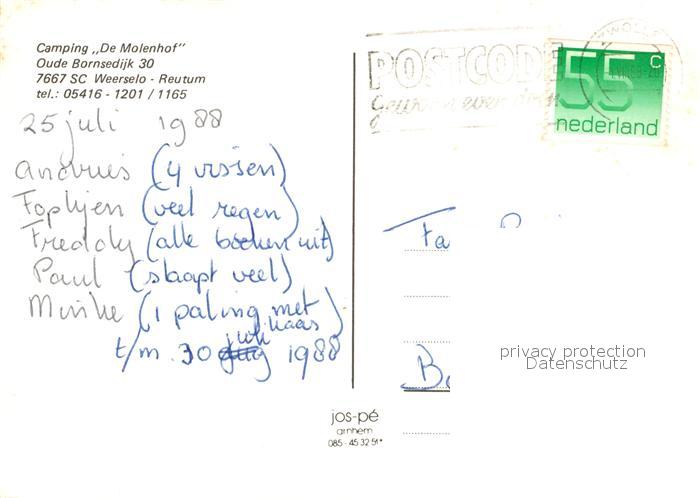 Camping „De Molenhof"
Oude Bornsedijk 30
7667 SC Weerselo - Reutum
tel.: 05416 - 1201 / 1165
25 juli 1988
Andries (4 vissen)
Fopkjen (veel regen)
Freddy (alle boeken uit)
Paul (slaapt veel)
Minke (1 paling met kaas)
t/m 30 juli 1988
POSTCODE
ZWOLLE
55 c
nederland
Fa
Bo
privacy protection
Datenschutz
jos-pé
arnhem
085 - 45 32 51*